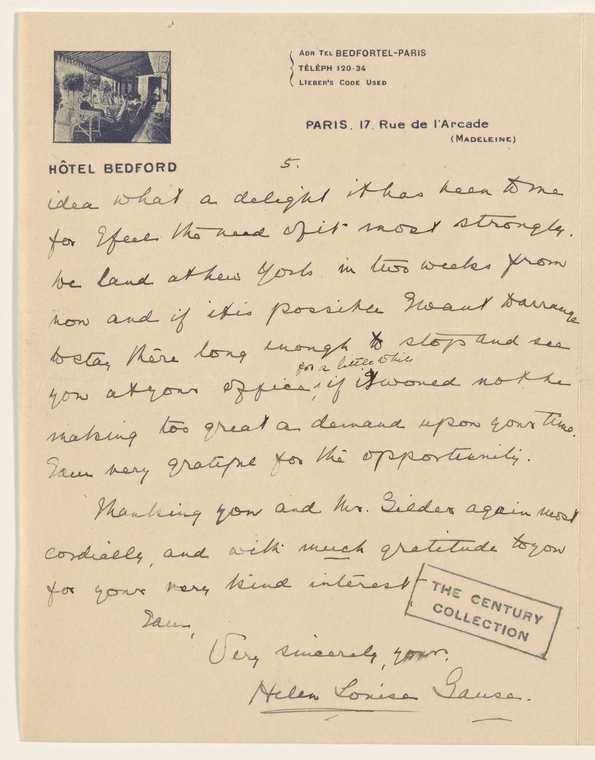 ADR TEL BEDFORTEL-PARIS
TÉLÉPH 120-34
LIEBER'S CODE USED
PARIS, 17, Rue de l'Arcade
(MADELEINE)
HÔTEL BEDFORD
5.
idea what a delight it has been to me
for I feel the need of it most strongly.
We land at New York in two weeks from
now and if it is possible I want to arrange
to stay there long enough to stop and see
for a little while
you at your office, if it would not be
making too great a demand upon your time.
I am very grateful for the opportunity.
Thanking you and Mr. Gilder again most
cordially, and with much gratitude to you
for your very kind interest
I am,
Very sincerely yours.
Helen Louise Gause.
THE CENTURY
COLLECTION